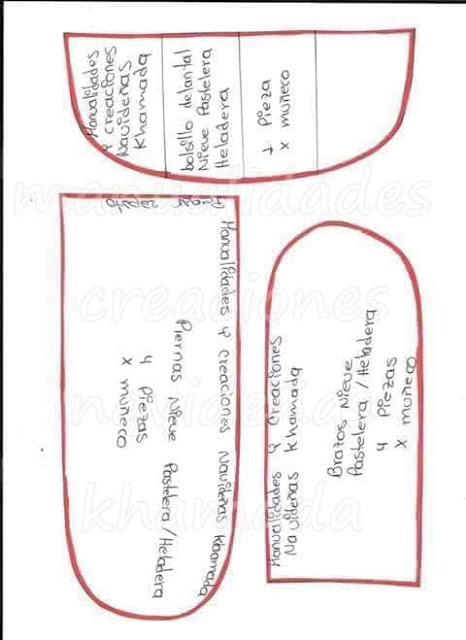 Manualidades
y creaciones
Navideñas
Khamada
bolsillo delantal
Nieve Pastelera
Heladera
1 Pieza
x muñeco
Manualidades y Creaciones Navideñas Khamada
Piernas Nieve Pastelera/Heladera
4 Piezas
x muñeco
Manualidades y Creaciones
Navideñas Khamada
Brazos Nieve
Pastelera/Heladera
4 Piezas
x muñeco
manualidades
creaciones
navideñas
khamada